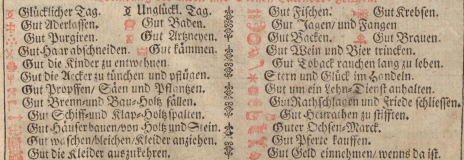 Glücklicher Tag. Unglückl. Tag.
Gut Aderlassen. Gut Baden.
Gut Purgiren. Gut Artzneyen.
Gut Haar abschneiden. Gut kämmen.
Gut die Kinder zu entwehnen
Gut die Aecker zu tünchen und pflügen.
Gut Propffen/ Säen und Pflantzen.
Gut Brenn-und Bau-Holtz fällen.
Gut Schiff-und Klap-Holtz spalten.
Gut Häuser bauen/von Holtz und Stein.
Gut waschen/bleichen/Kleider anziehen.
Gut die Kleider auszukehren.
Gut Fischen. Gut Krebsen.
Gut Jagen und Fangen
Gut Backen. Gut Brauen.
Gut Wein und Bier trincken.
Gut Toback rauchen lang zu leben.
Stern und Glück im Handeln.
Gut um ein Lehn-Dienst anhalten.
Gut Rathschlagen und Friede schliessen.
Gut Heurathen zu stifften.
Guter Ochsen-Marck.
Gut Pferte kauffen.
Gut Geld einnehmen/wenns da ist.